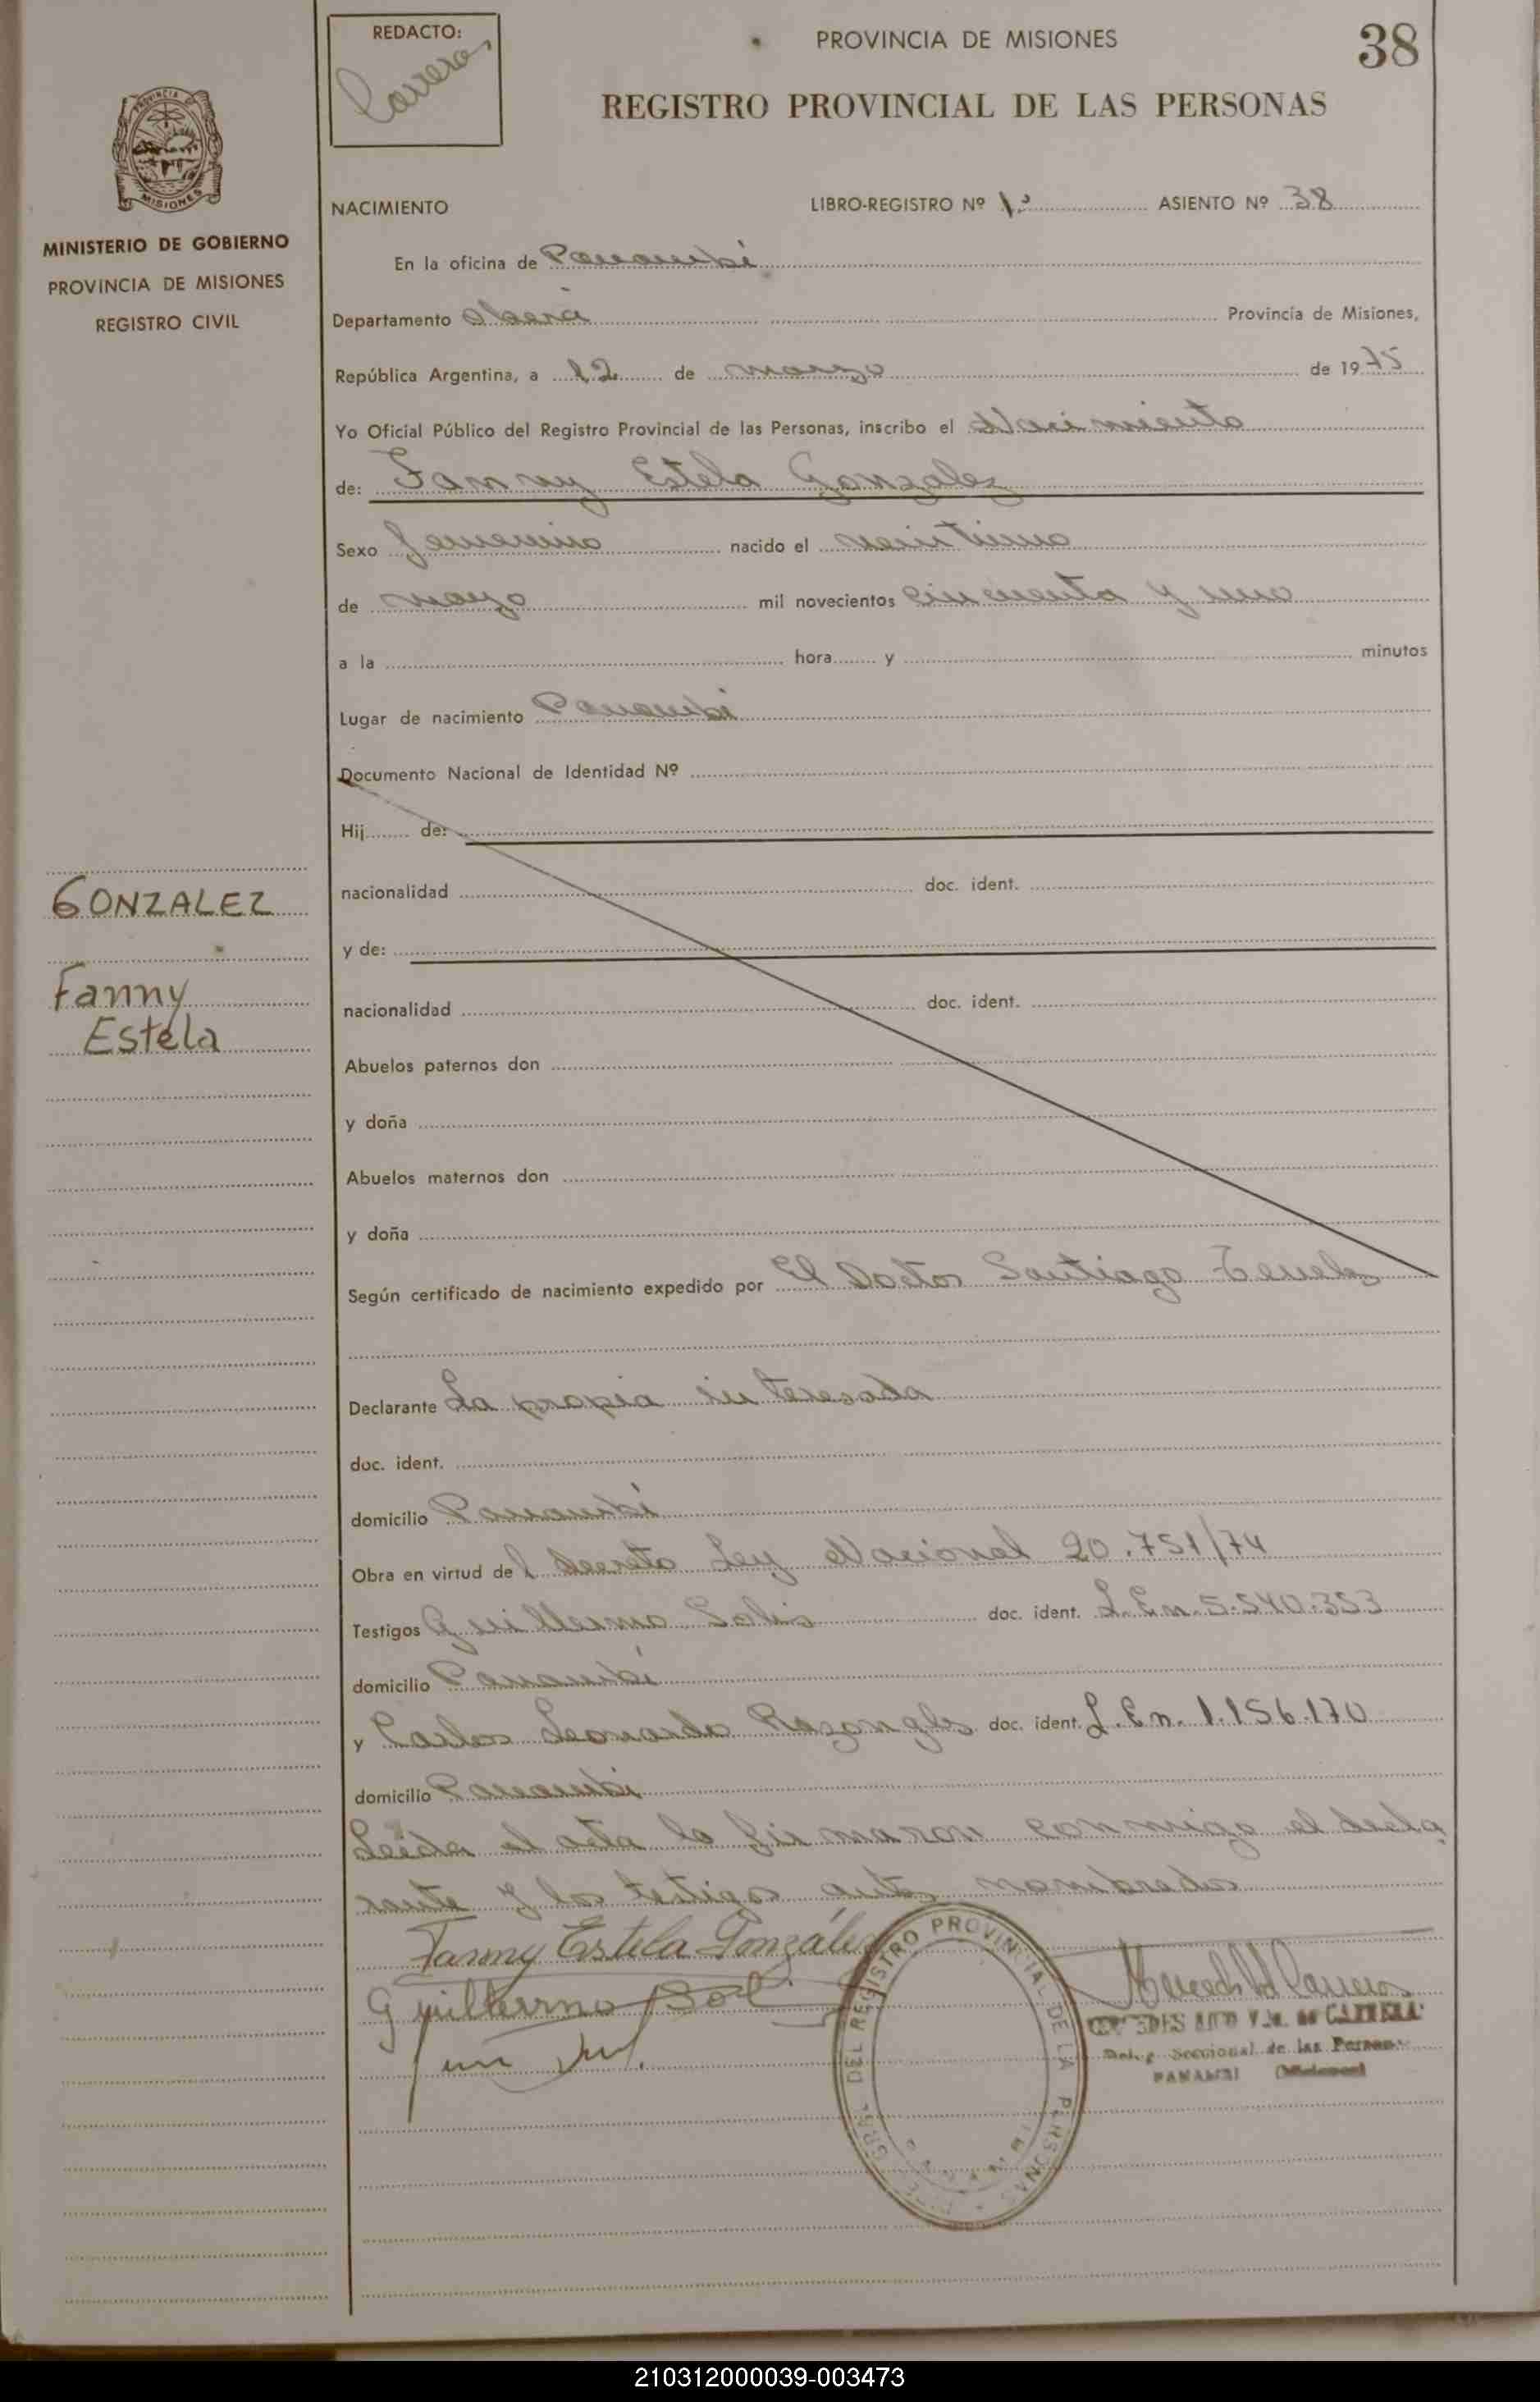 REDACTO:
Carrera
PROVINCIA DE MISIONES
38
REGISTRO PROVINCIAL DE LAS PERSONAS
PROVINCIA DE
MISIONES
MINISTERIO DE GOBIERNO
PROVINCIA DE MISIONES
REGISTRO CIVIL
NACIMIENTO
LIBRO-REGISTRO Nº 1º ASIENTO Nº 38
En la oficina de Panambí
Departamento Oberá Provincia de Misiones,
República Argentina, a 12 de marzo de 1975
Yo Oficial Público del Registro Provincial de las Personas, inscribo el Nacimiento
de: Fanny Estela Gonzalez
Sexo femenino nacido el veintiuno
de mayo mil novecientos cincuenta y uno
a la hora y minutos
Lugar de nacimiento Panambí
Documento Nacional de Identidad Nº
Hij de:
nacionalidad doc. ident.
y de:
nacionalidad doc. ident.
Abuelos paternos don
y doña
Abuelos maternos don
y doña
GONZALEZ
Fanny
Estela
Según certificado de nacimiento expedido por El Doctor Santiago
Declarante La propia interesada
doc. ident.
domicilio Panambí
Obra en virtud del Decreto Ley Nacional 20.751/74
Testigos Guillermo doc. ident. L.E.n. 5.540.353
domicilio Panambí
y Carlos Leonardo doc. ident. L.E.n. 1.156.170
domicilio Panambí
Leída el acta la firmaron conmigo el decla
rante y los testigos antes nombrados
Fanny Estela González
Guillermo
DEL REGISTRO PROVINCIAL DE LA PERSONAS
de CARRERA
Seccional de las Personas
PANAMBI (Misiones)
210312000039-003473